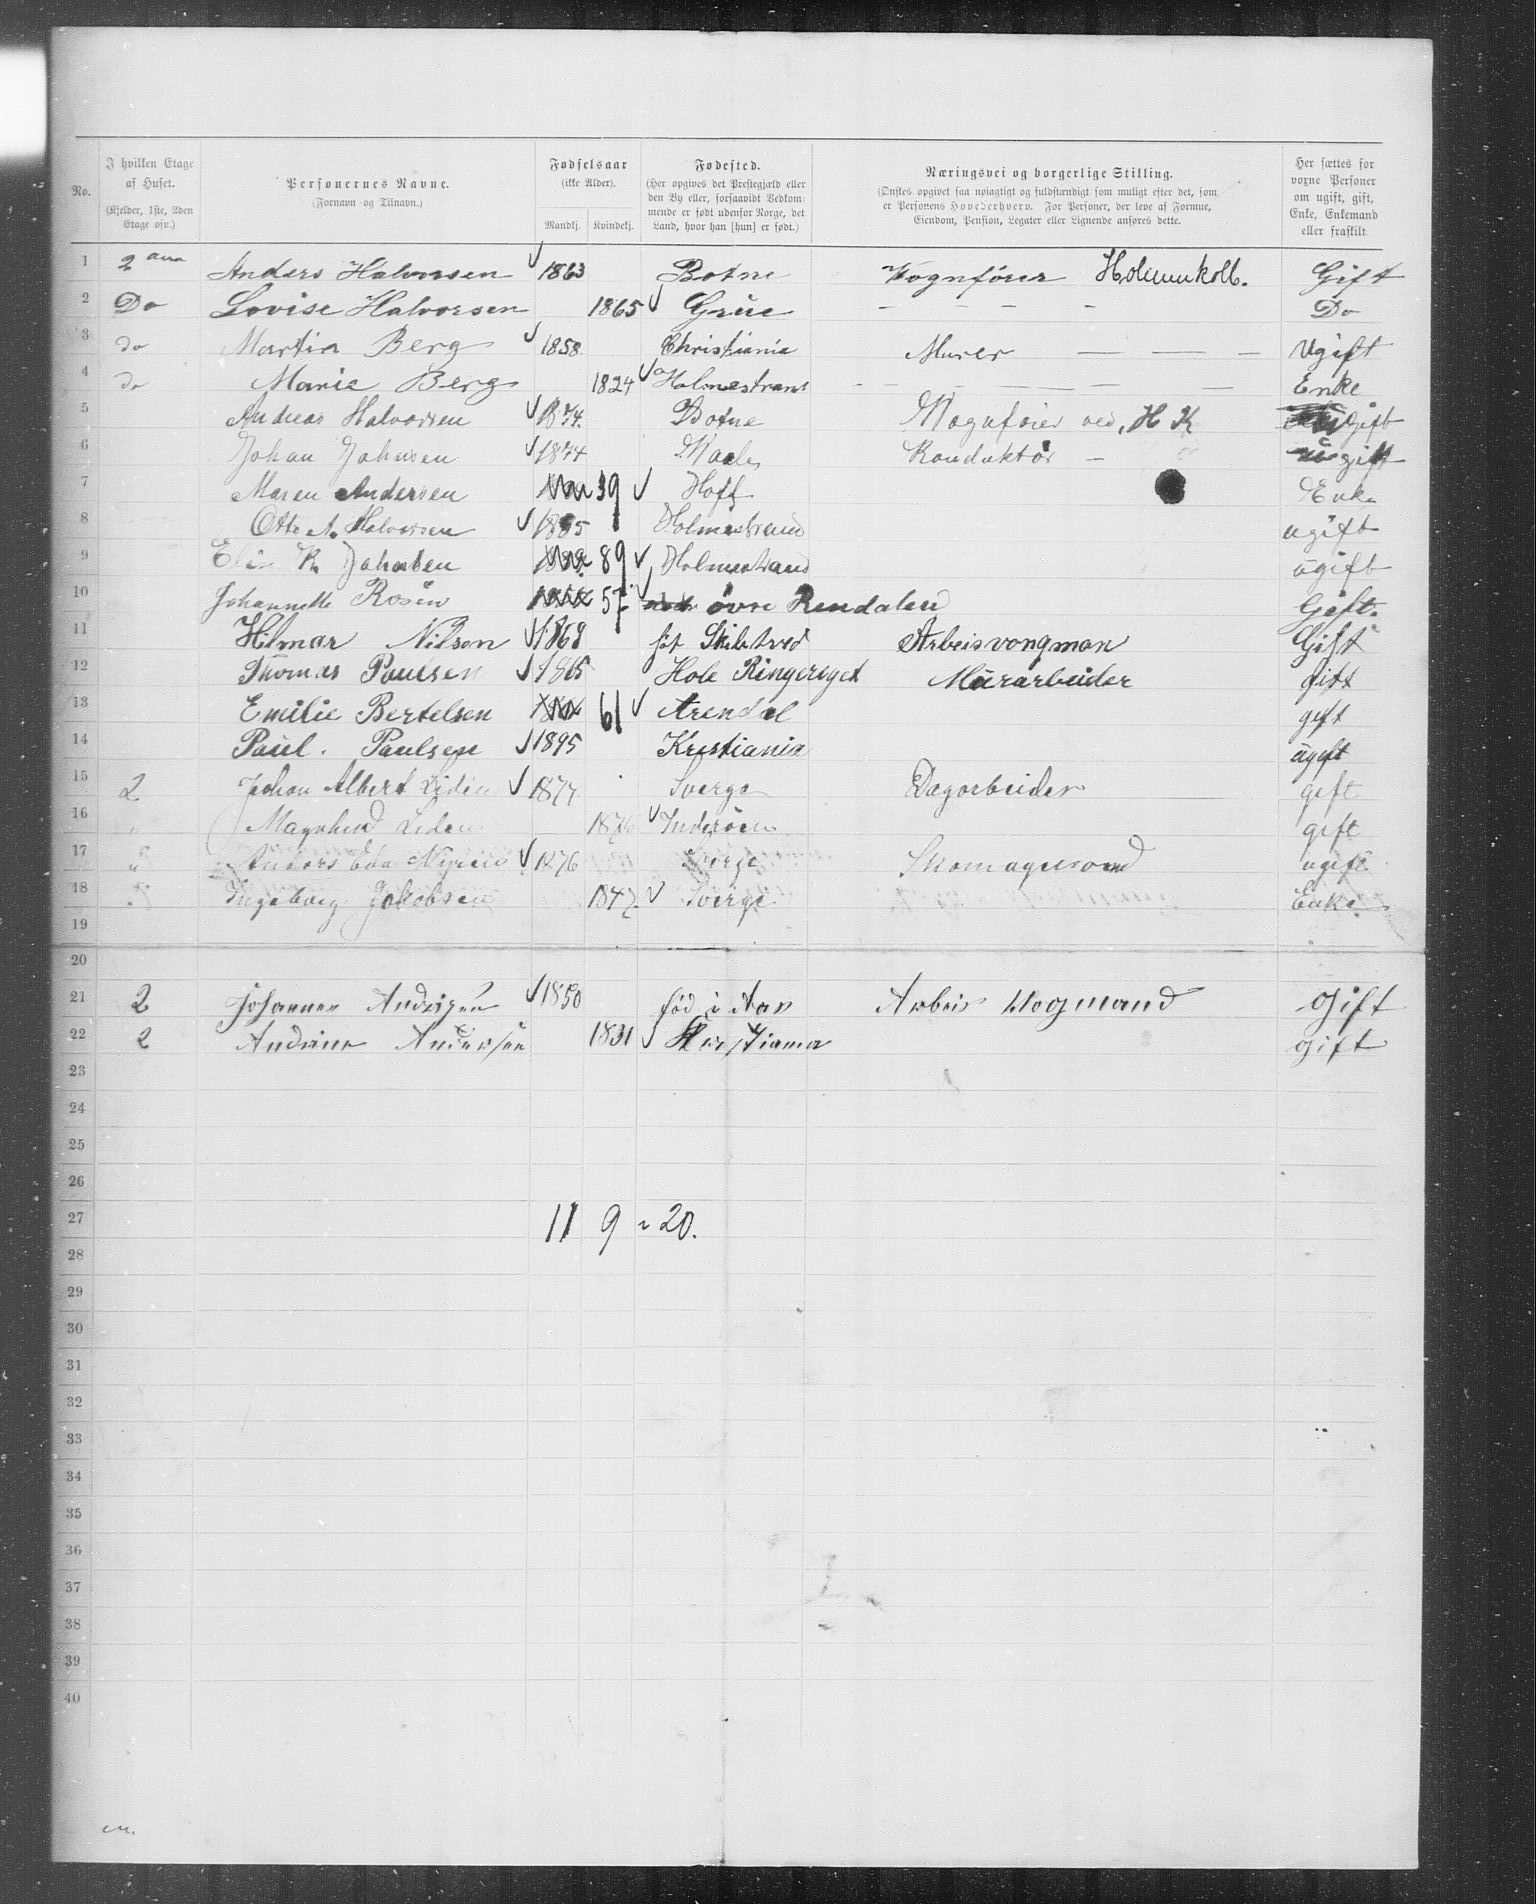 No.
I hvilken Etage af Huset. (Kjelder, 1ste, 2den Etage osv.)
Personernes Navne. (Fornavn og Tilnavn.)
Fødselsaar (ikke Alder). Mandkj. Kvindekj.
Fødested. (Her opgives det Prestegjæld eller den By eller, forsaavidt Vedkommende er født udenfor Norge, det Land, hvor han [hun] er født.)
Næringsvei og borgerlige Stilling. (Ønskes opgivet saa nøiagtigt og fuldstændigt som muligt efter det, som er Personens Hovederhverv. For Personer, der leve af Formue, Eiendom, Pension, Legater eller Lignende anføres dette.
Her sættes for voxne Personer om ugift, gift, Enke, Enkemand eller fraskilt
1 2 Anders Halvorsen 1863 Botne Vognfører Holmenkolb. Gift
2 Do Lovise Halvorsen 1865 Grue - - - Do
3 do Martin Berg 1858 Christiania Murer — — — Ugift
4 do Marie Berg 1824 Holmestrand - — — — Enke
5 Andreas Halvorsen 1874 Botne Vognfører ved H K gift
6 Johan Johnsen 1874 Konduktør - ugift
7 Maren Andersen 39 Hoff Enke
8 Otto A. Halvorsen 1885 Holmestrand ugift
9 K. Johnsen 89 Holmestrand ugift
10 Johannette Rosén 57 øvre Rendalen Gift.
11 Hilmar Nilson 1868 Skibtved Arbeisvongman Gift
12 Thomas Paulsen 1865 Hole Ringeriget Murarbeider gift
13 Emilie Bertelsen 61 Arendal gift
14 Paul. Paulsen 1895 Kristiania ugift
15 2 Johan Albert Lidén 1877 Sverge Dagarbeider gift
16 " Magnhild Liden 1876 Inderøen gift
17 " Anders 1876 Sverge ugift
18 " Ingeborg Jakobsen 1847 Sverge Enke
19
20
21 2 Johannes Andersen 1850 fød i Aas Arbeis Vogmand gift
22 2 Andrine Andersen 1831 Kristiania gift
23
24
25
26
27 11 9 = 20.
28
29
30
31
32
33
34
35
36
37
38
39
40